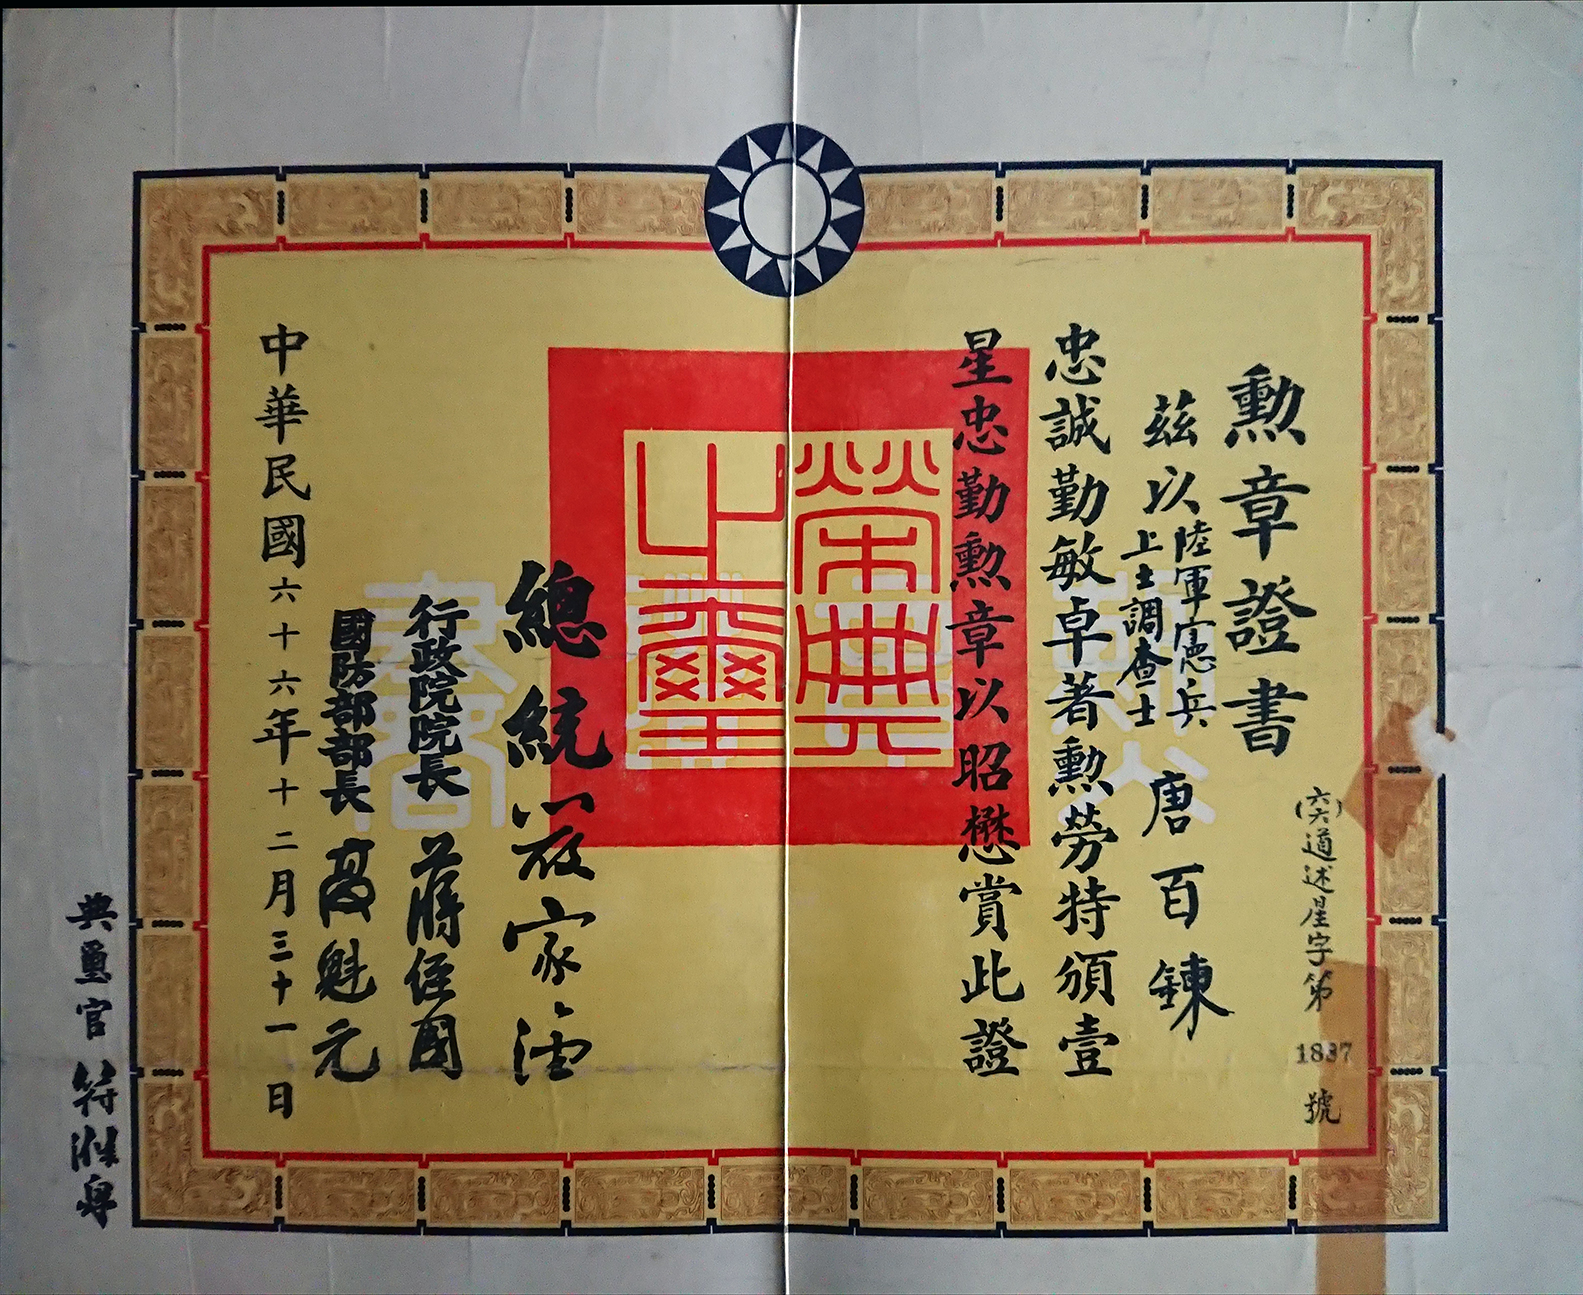 勳章證書
(六六)道述星字第1837號
茲以陸軍憲兵上士調查士唐百鍊
忠誠勤敏卓著勳勞特頒壹
星忠勤勳章以昭懋賞此證
榮典之璽
總統嚴家淦
行政院院長蔣經國
國防部部長高魁元
中華民國六十六年十二月三十一日
典璽官符滌泉